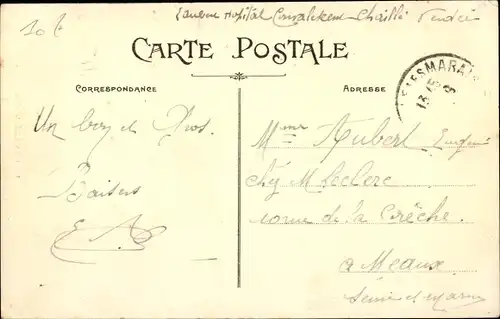 10 t
Hôpital Chaillé Vendée
CARTE POSTALE
CORRESPONDANCE
ADRESSE
LES MARAIS
13 15 9
Un bon et Gros
Baisers
Mme Aubert
chez M Leclerc
cour de la Crèche.
à Meaux
Seine et Marne